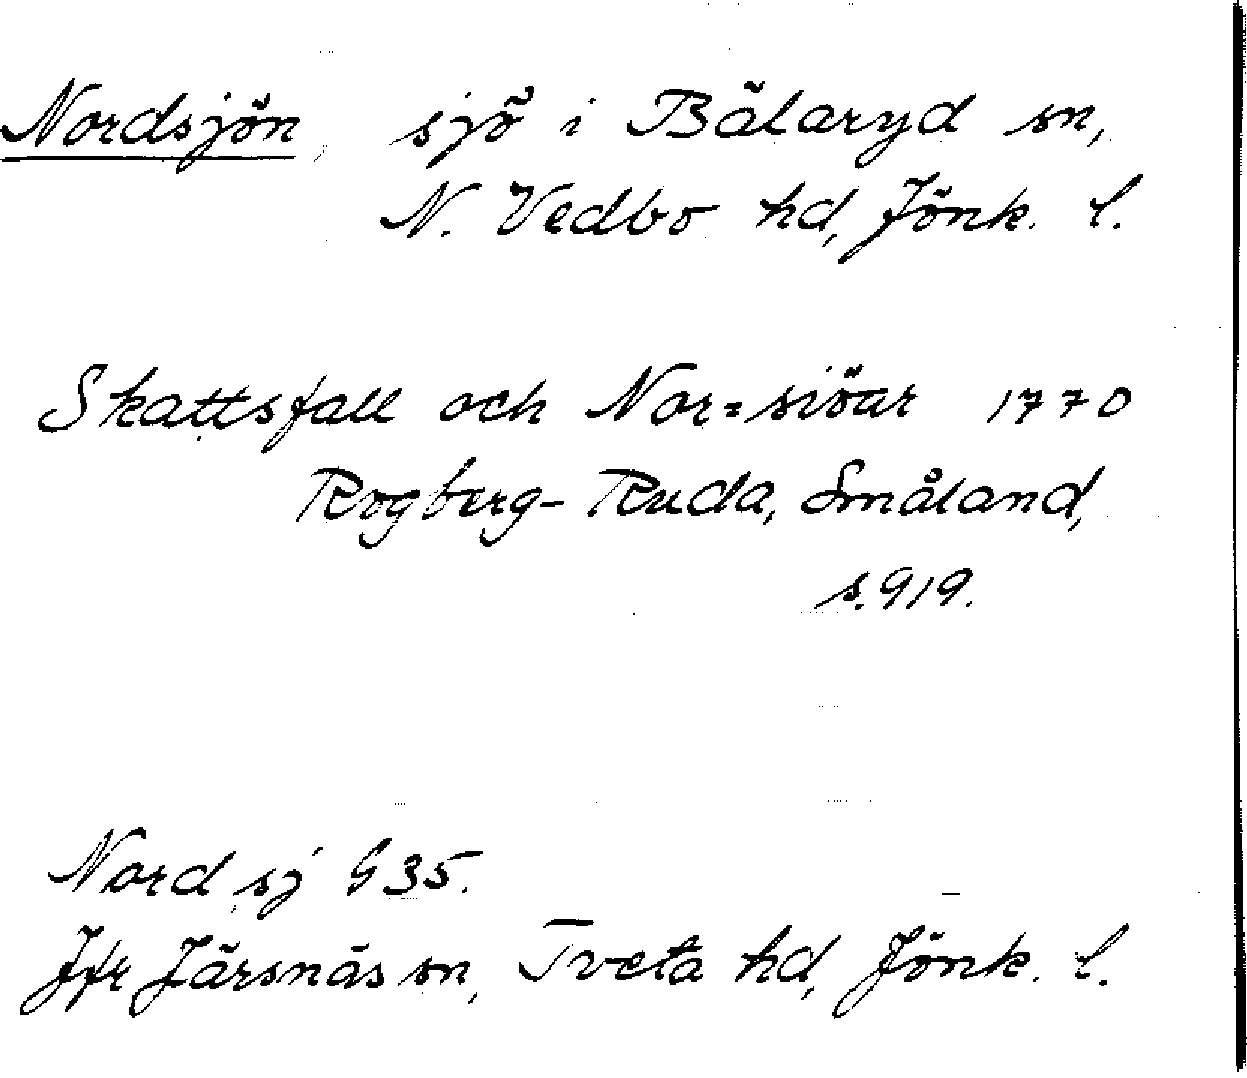 Nordsjön, sjö i Bälaryd sn,
N. Vedbo hd, Jönk. l.
Skattsfall och Nor=siöar 1770
Rogberg-Ruda, Småland,
s. 919.
Nord sj G 35.
Jfr Järsnäs sn, Tveta hd, Jönk. l.